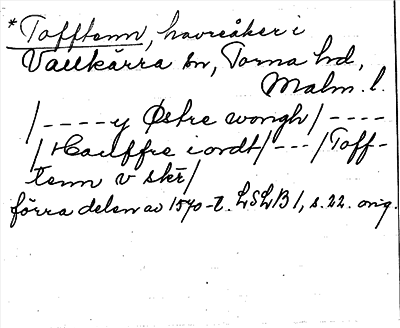 *Tofftenn, havreåker i
Vallkärra sn, Torna hd,
Malm. l.
/----y Østre wongh/----
/Hauffre iordt/---/Toff-
tenn v skr/
förra delen av 1570-t. LSLB 1, s. 22. orig.